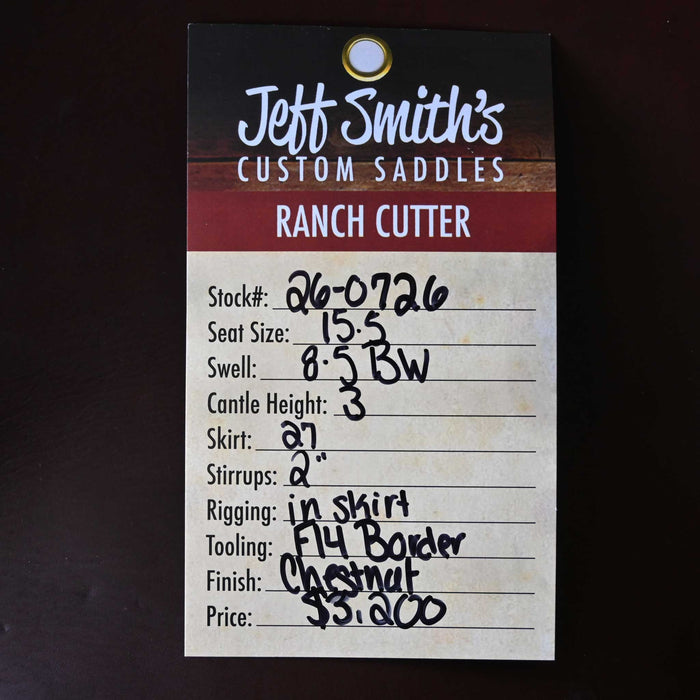 Jeff Smith's
CUSTOM SADDLES
RANCH CUTTER
Stock#: 26-0726
Seat Size: 15.5
Swell: 8.5 BW
Cantle Height: 3
Skirt: 27
Stirrups: 2"
Rigging: in skirt
Tooling: F14 Border
Finish: Chestnut
Price: $3,200